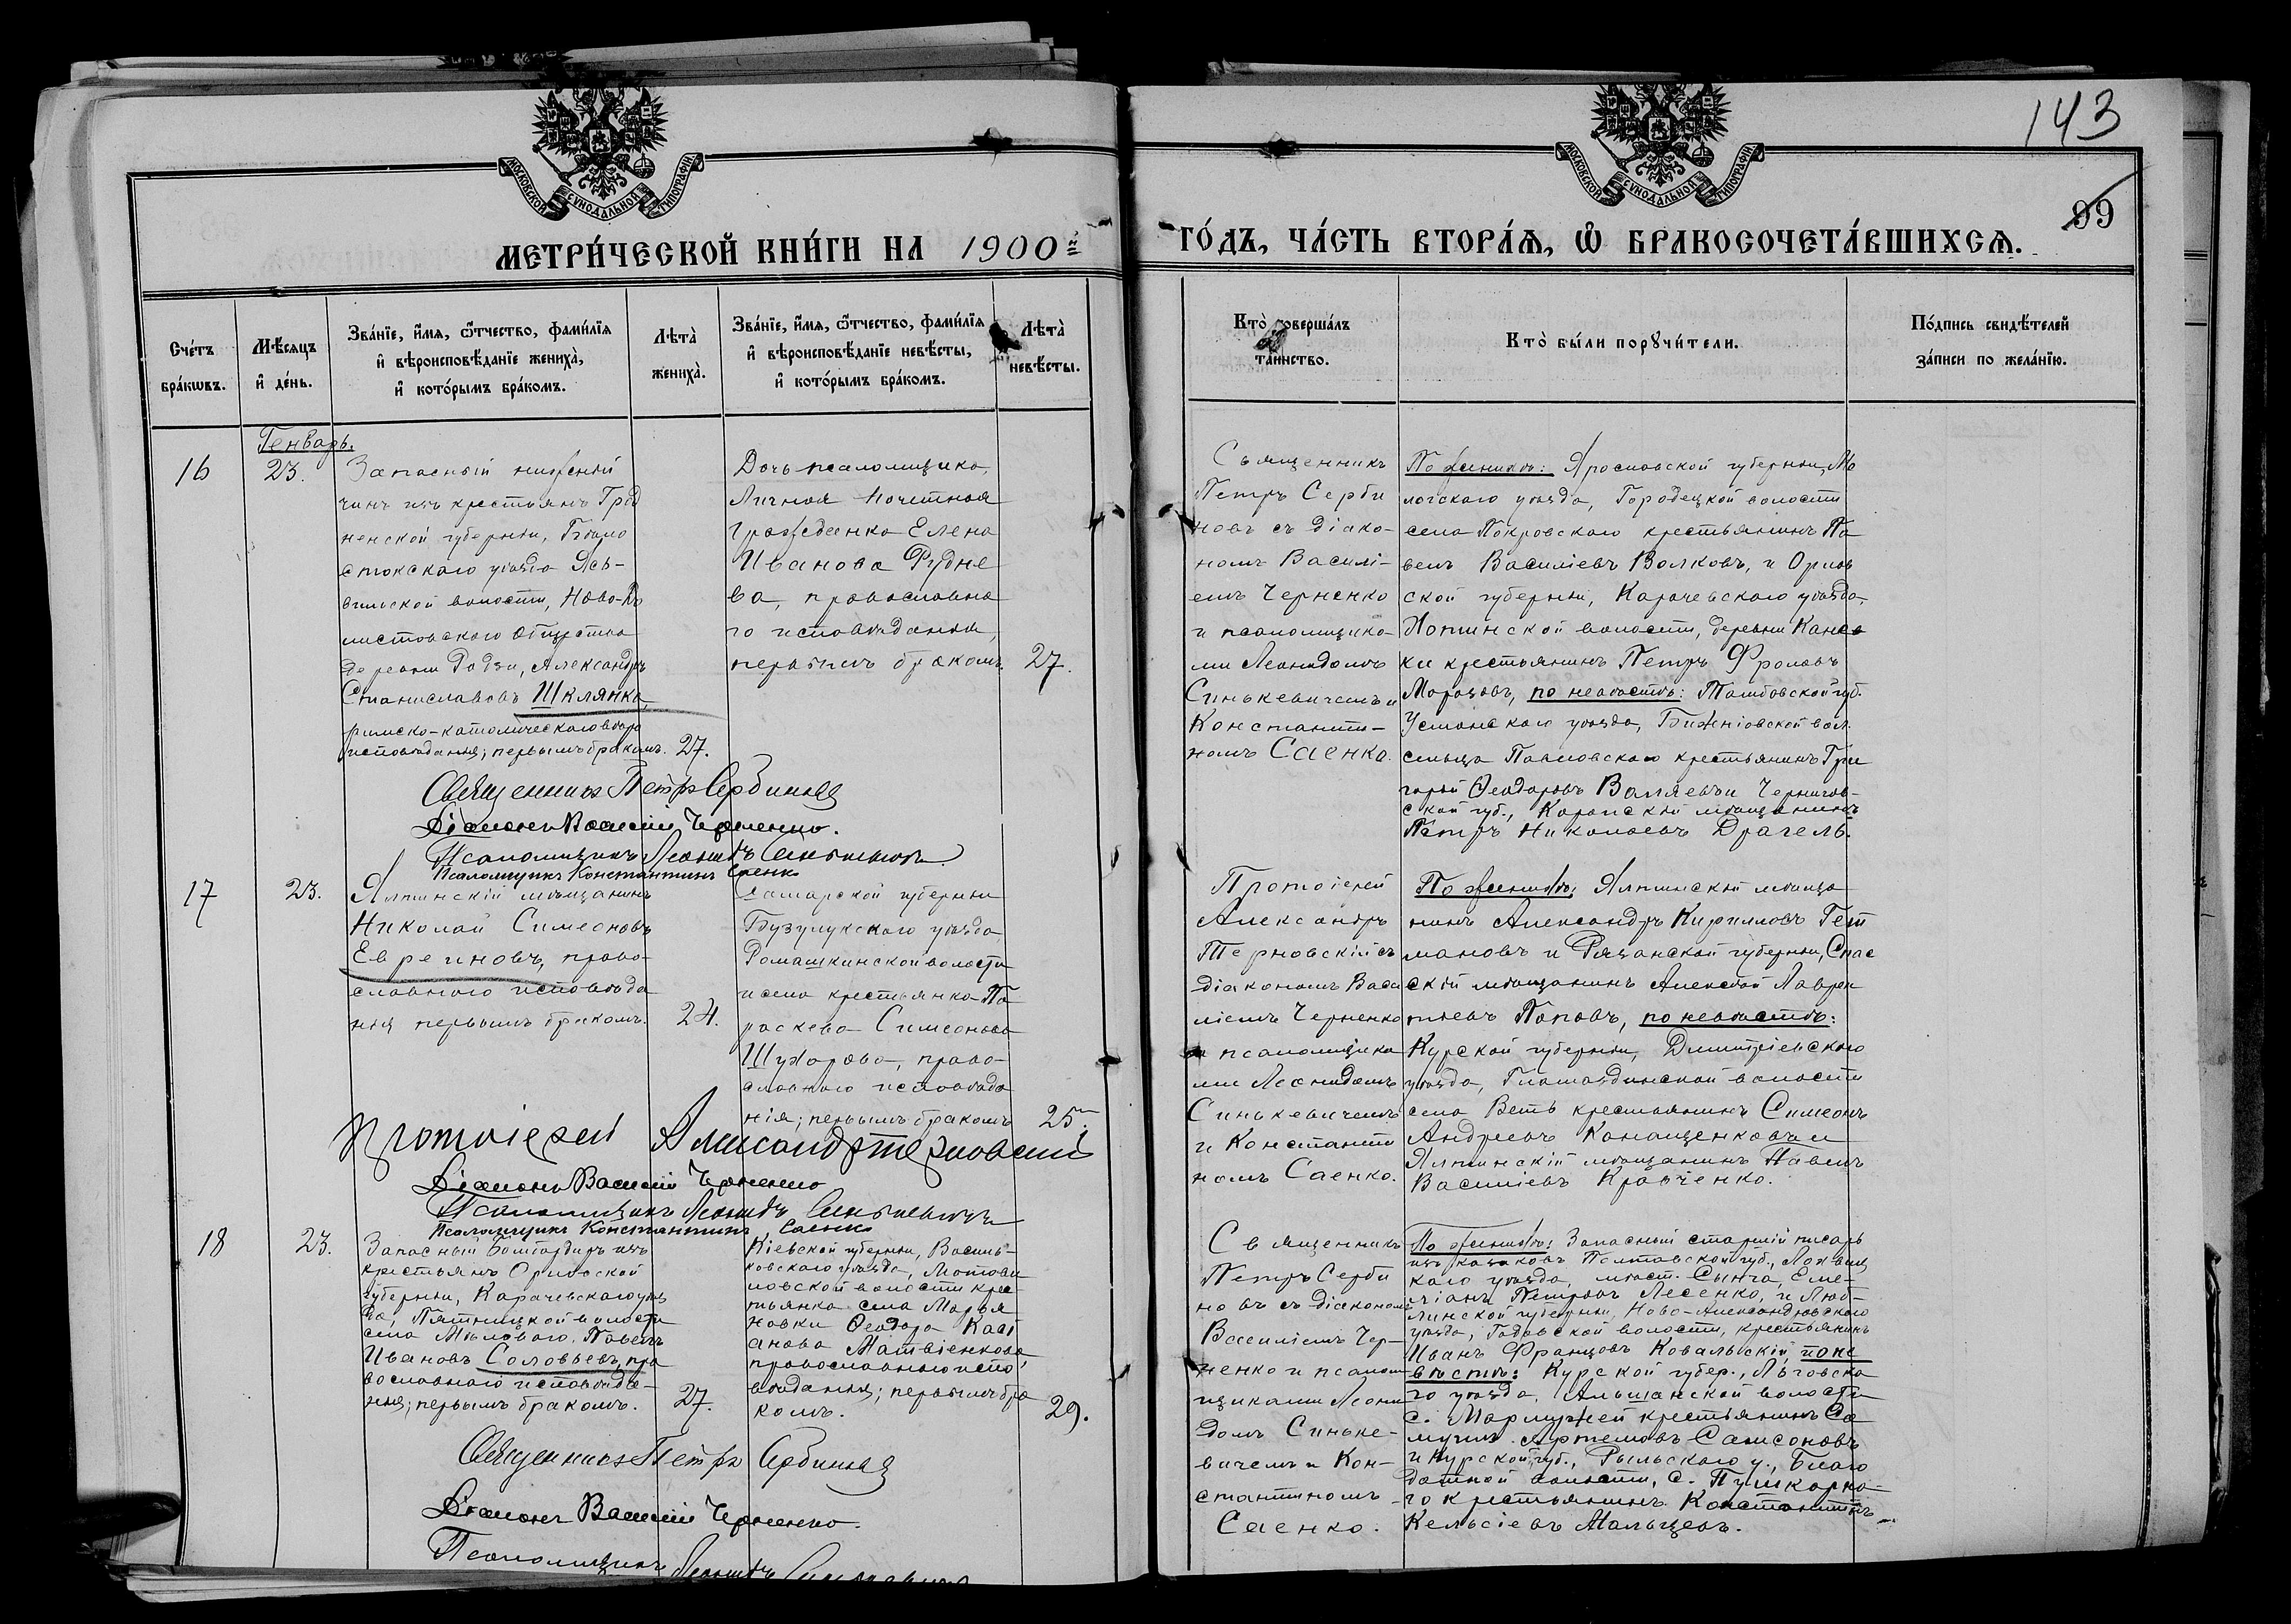 143
99
МОСКОВСКОЙ СѴНОДАЛЬНОЙ ТИПОГРАФІИ
МОСКОВСКОЙ СѴНОДАЛЬНОЙ ТИПОГРАФІИ
МЕТРИ́ЧЕСКОЙ КНИ́ГИ НА 1900й
ГО́ДЪ, ЧА́СТЬ ВТОРА́Ѧ, Ѽ БРАКОСОЧЕТА́ВШИХСѦ.
Сче́тъ
бра́кѡвъ.
Мѣ́сяцъ
и҆ де́нь.
Зва́нїе, и҆́мѧ, ѻ҆́тчество, фами́лїѧ
и҆ вѣроисповѣ́данїе жениха̀,
и҆ кото́рымъ бра́комъ.
Лѣта̀
жениха̀.
Зва́нїе, и҆́мѧ, ѻ҆́тчество, фами́лїѧ
и҆ вѣроисповѣ́данїе невѣ́сты,
и҆ кото́рымъ бра́комъ.
Лѣта̀
невѣ́сты.
Кто̀ соверша́лъ
та́инство.
Кто̀ бы́ли порꙋчи́тели.
По́дпись свидѣ́телей
за́писи по жела́нїю.
Генварь.
16
23.
Запасный нижній
чинъ изъ крестьянъ Грод
ненской губерніи, Бѣло
стокскаго уѣзда Ясь-
вильской волости, Ново-
общества
деревни Александръ
Станиславовъ Шклянка,
римско-католическаго вѣро
исповѣданія; первымъ бракомъ.
27.
Дочь псаломщика,
Личная Почетная
Гражданка Елена
Иванова Рудне
ва, православна
го исповѣданія,
первымъ бракомъ.
27.
Священникъ
Петръ Серби
новъ съ діако-
номъ Василі-
емъ Черненко
и псаломщика-
ми Леонидомъ
Синькевичемъ и
Константи-
номъ Саенко.
По женихѣ: Ярославской губерніи, Мо
логскаго уѣзда, Городецкой волости
села Покровскаго крестьянинъ Па
велъ Василіевъ Волковъ, и Орлов
ской губерніи, Карачевскаго уѣзда,
Хотинской волости, деревни
ки крестьянинъ Петръ Фроловъ
Морозовъ, по невѣстѣ: Тамбовской губ.
Усманскаго уѣзда, вол.
сельца Павловскаго крестьянинъ Гри
горій Ѳеодоровъ Валяевъ и Чернигов-
ской губ., мѣщанинъ
Петръ Николаевъ Драгель.
Священникъ Петръ Сербиновъ
Діаконъ Василій Черненко.
Псаломщикъ Леонидъ Синькевичъ
Псаломщикъ Константинъ Саенко
17
23.
Ялтинскій мѣщанинъ
Николай Симеоновъ
Евреиновъ, право-
славнаго исповѣда
нія первымъ бракомъ.
24.
Самарской губерніи
Бузулукскаго уѣзда
Ромашкинской волости
и села крестьянка Па
раскева Симеонова
Шухорова, право-
славнаго исповѣда
нія; первымъ бракомъ
25.
Протоіерей
Александръ
Терновскій съ
діакономъ Васи
ліемъ Черненко
и псаломщика
ми Леонидомъ
Синькевичемъ
и Константи
номъ Саенко.
По женихѣ: Ялтинскій мѣща
нинъ Александръ Кирилловъ Гет
мановъ и Рязанской губерніи, Спас
скій мѣщанинъ Алексѣй Лаврен
тіевъ Поповъ, по невѣстѣ:
Курской губерніи, Дмитріевскаго
уѣзда, волости
села Веть крестьянинъ Симеонъ
Андреевъ Конащенковъ и
Ялтинскій мѣщанинъ Павелъ
Василіевъ Кравченко.
Протоіерей Александръ Терновскій
Діаконъ Василій Черненко
Псаломщикъ Леонидъ Синькевичъ
Псаломщикъ Константинъ Саенко
18
23.
Запасный бомбардиръ изъ
крестьянъ Орловской
губерніи, Карачевскаго уѣз
да, Пятницкой волости
села Мыловаго, Павелъ
Ивановъ Соловьевъ, пра
вославнаго исповѣда-
нія; первымъ бракомъ.
27.
Кіевской губерніи, Василь-
ковскаго уѣзда, Мотови
ловской волости крес-
тьянка села Марья
новки Ѳеодора Касі
анова Матвіенкова
православнаго испо-
вѣданія; первымъ бра
комъ.
29.
Священникъ
Петръ Серби
новъ съ діакономъ
Василіемъ Чер-
ненко и псалом
щиками Леони
домъ Синьке-
вичемъ и Кон-
стантиномъ
Саенко.
По женихѣ: Запасный старшій писарь
изъ казаковъ Полтавской губ., Лохвиц
каго уѣзда, мѣст. Сынча, Еме-
ліанъ Петровъ Лесенко, и Люб-
линской губерніи, Ново-Александровскаго
уѣзда, Годовской волости, крестьянинъ
Иванъ Францовъ Ковальскій, по не
вѣстѣ: Курской губер., Льговска
го уѣзда, волости
с. крестьянинъ Са
муилъ Артемовъ Самсоновъ
и Курской губ., Рыльскаго у., Благо
датной волости, с. Пушкарна-
го крестьянинъ Константинъ
Кельсіевъ Мальцевъ.
Священникъ Петръ Сербиновъ
Діаконъ Василій Черненко.
Псаломщикъ Леонидъ Синькевичъ